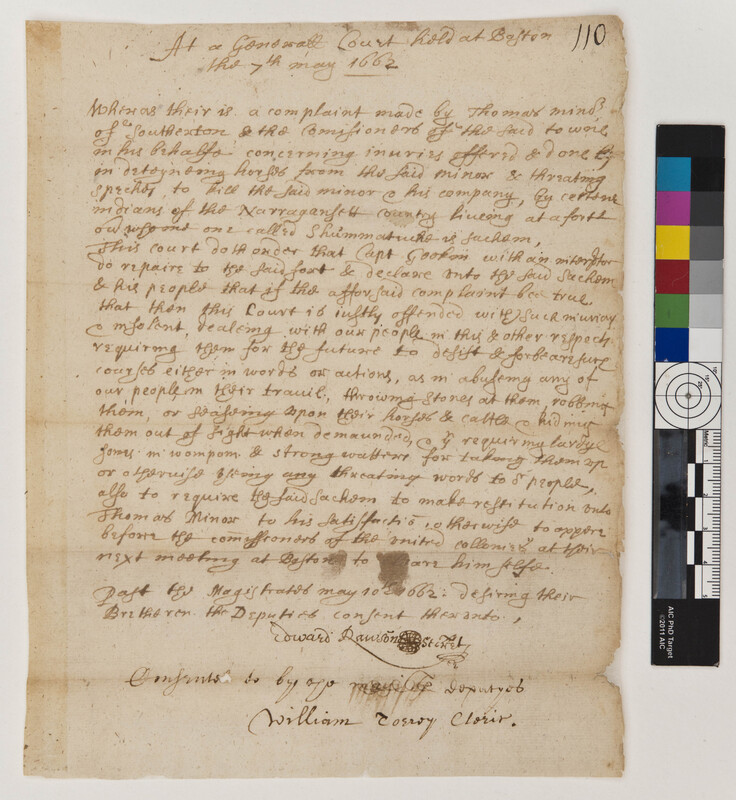 110
At a Generall Court held at Boston
the 7th may 1662
Whereas their is a complaint made by Thomas minor
of Southerton & the Comissioners of the said towne
in his behalfe concerning iniuries offered & done by
in deteyneing horses from the said minor & threating
speches, to kill the said minor & his company, by certene
indians of the Narragansett country liueing at a fort
ouer whome one called Shummatucke is sachem,
This court doth order that Capt Gookin with an interpter
do repaire to the said fort & declare vnto the said sachem
& his people that if the afforsaid complaint bee true
that then this Court is iustly offended with such iniurious
& insolent, dealeing with our people in this & other respects
requiring them for the future to desist & forbeare such
courses either in words or actions, as in abuseing any of
our people in their trauil, throwing stones at them, robbing
them, or seaseing vpon their horses & cattle & hiding
them out of sight when demaunded, & yn requiring large
somes in wompom & strong watters for taking them vp
or otherwise vseing any threating words to or people,
also to require the said sachem to make restitution vnto
Thomas Minor to his satisfactiō, otherwise to appere
before the comissioners of the vnited collonies at their
next meeting at Boston to are himselfe.
Past the Magistrates may 10th 1662: desiring their
Bretheren the Deputies consent therunto,
Edward Rawson Secret
Consented to by the Deputyes
William Torrey Cleric.